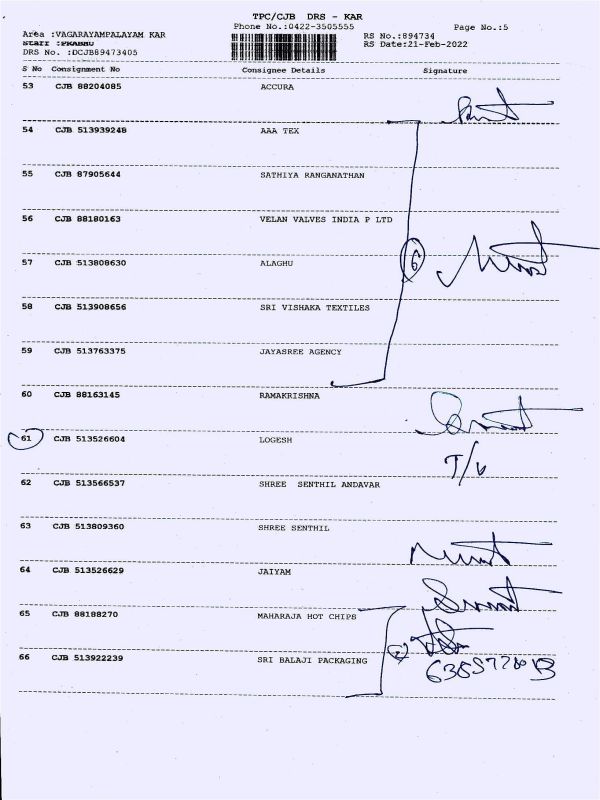 TPC/CJB DRS - KAR
Phone No.:0422-3505555 Page No.:5
Area :VAGARAYAMPALAYAM KAR RS No.:894734
Staff :PRABHU RS Date:21-Feb-2022
DRS No. :DCJB89473405
S No Consignment No Consignee Details Signature
53 CJB 88204085 ACCURA
54 CJB 513939248 AAA TEX
55 CJB 87905644 SATHIYA RANGANATHAN
56 CJB 88180163 VELAN VALVES INDIA P LTD
57 CJB 513808630 ALAGHU
6
58 CJB 513908656 SRI VISHAKA TEXTILES
59 CJB 513763375 JAYASREE AGENCY
60 CJB 88163145 RAMAKRISHNA
61 CJB 513526604 LOGESH
T/V
62 CJB 513566537 SHREE SENTHIL ANDAVAR
63 CJB 513809360 SHREE SENTHIL
64 CJB 513526629 JAIYAM
65 CJB 88188270 MAHARAJA HOT CHIPS
66 CJB 513922239 SRI BALAJI PACKAGING